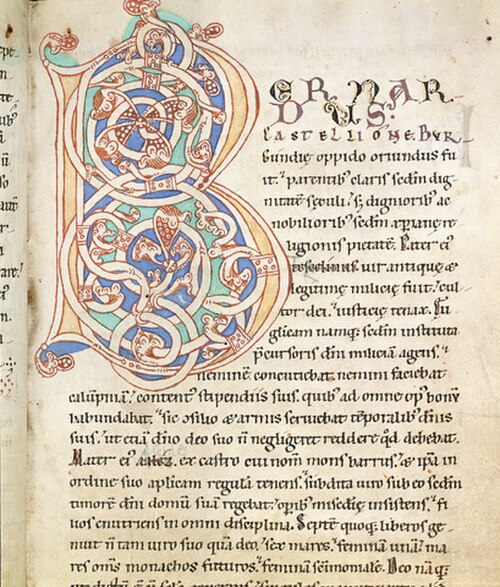 BERNAR
DUS.
CASTELLIONE. BUR
gundie oppido oriundus fu
it. parentib' claris sedm dig
nitate seculi. s; dignorib' ac
nobiliorib' sedm xpiane re
ligionis pietate. Pater ei'
tescelinus uir antique &
legitime milicie fuit. cul
tor dei. iusticie tenax. Eu
glicam namq; sedm instituta
p̄cursoris dni miliciā agens.
neminē concutiebat. nemini faciebat
calūpniā. content' stipendiis suis. quib' ad omne op' bonū
habundabat. sic ɔsilio & armis seruiebat tēporalib' dnis
suis. ut etiā dno deo suo n̄ negligeret reddere qd debebat.
Mater ei' ex castro cui nom̄ mons barrus. & ipsa in
ordine suo aplicam regulā tenens. subdita uiro sub eo sedm
timorē dni domū suā regebat. opib' misedie insistens. fi
lios enutriens in omni disciplina. Septē quoq; liberos ge
nuit n̄ tam uiro suo quā deo. sex mares. feminā unā. ma
res om̄s monachos futuros. feminā sc̄imonialē. Deo nāq;